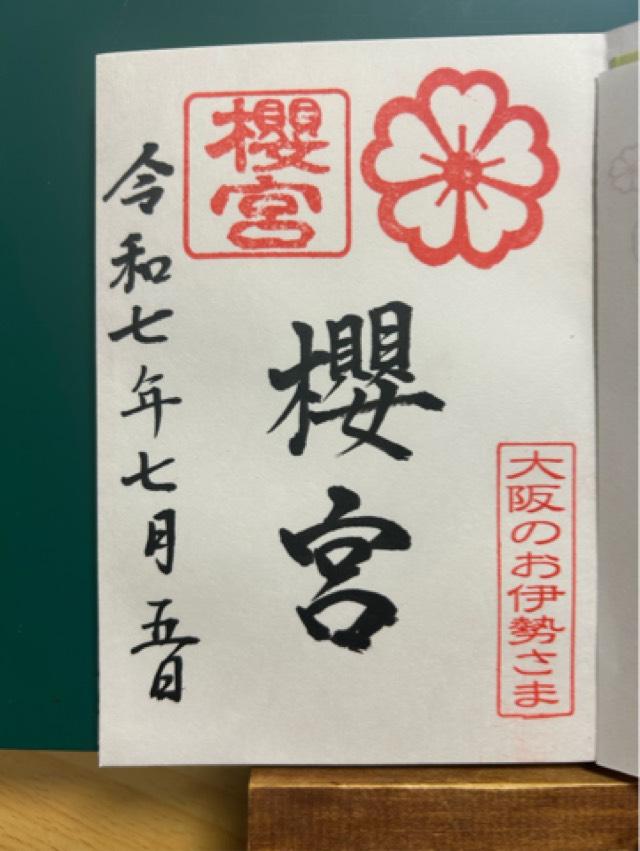 大阪のお伊勢さま
櫻宮
櫻宮
令和七年七月五日